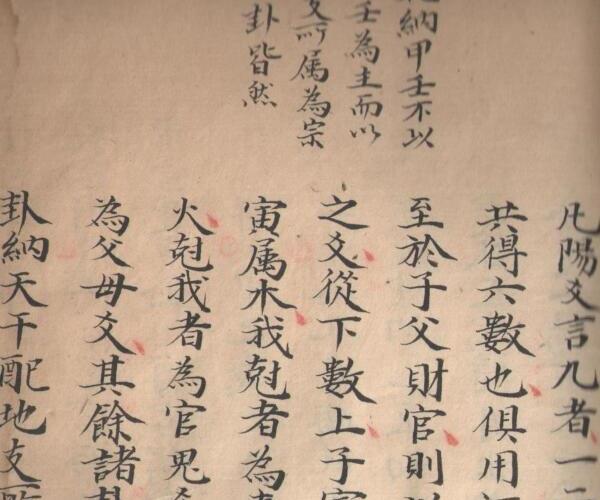 納甲壬不以
壬為主而以
爻所属為宗
卦皆然
凡陽爻言九者一
共得六數也俱用
至於子父財官則
之爻從下數上子寅
寅属木我尅者為
火尅我者為官鬼
為父母爻其餘諸卦
卦納天干配地支